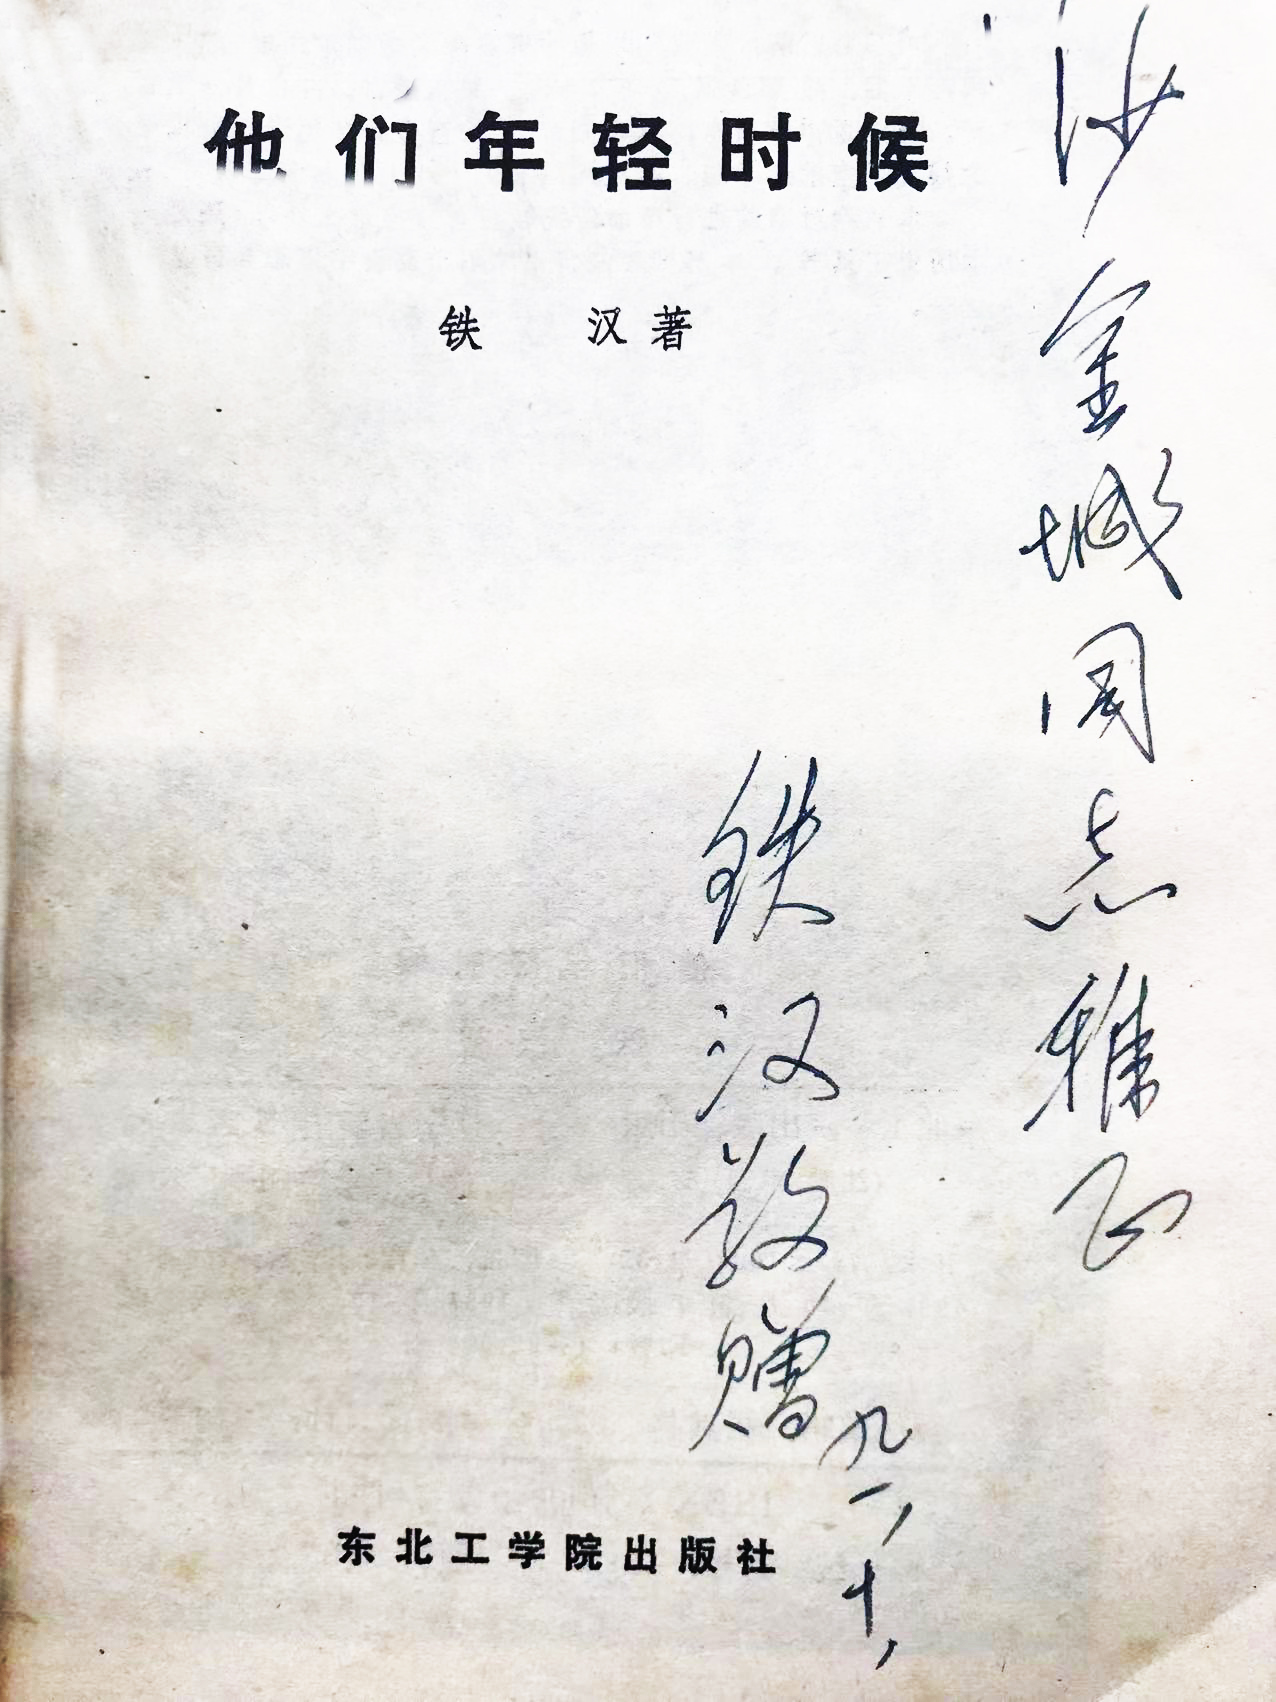 他们年轻时候
铁 汉 著
沙金城同志雅正
铁汉敬赠
九一，十，
东北工学院出版社